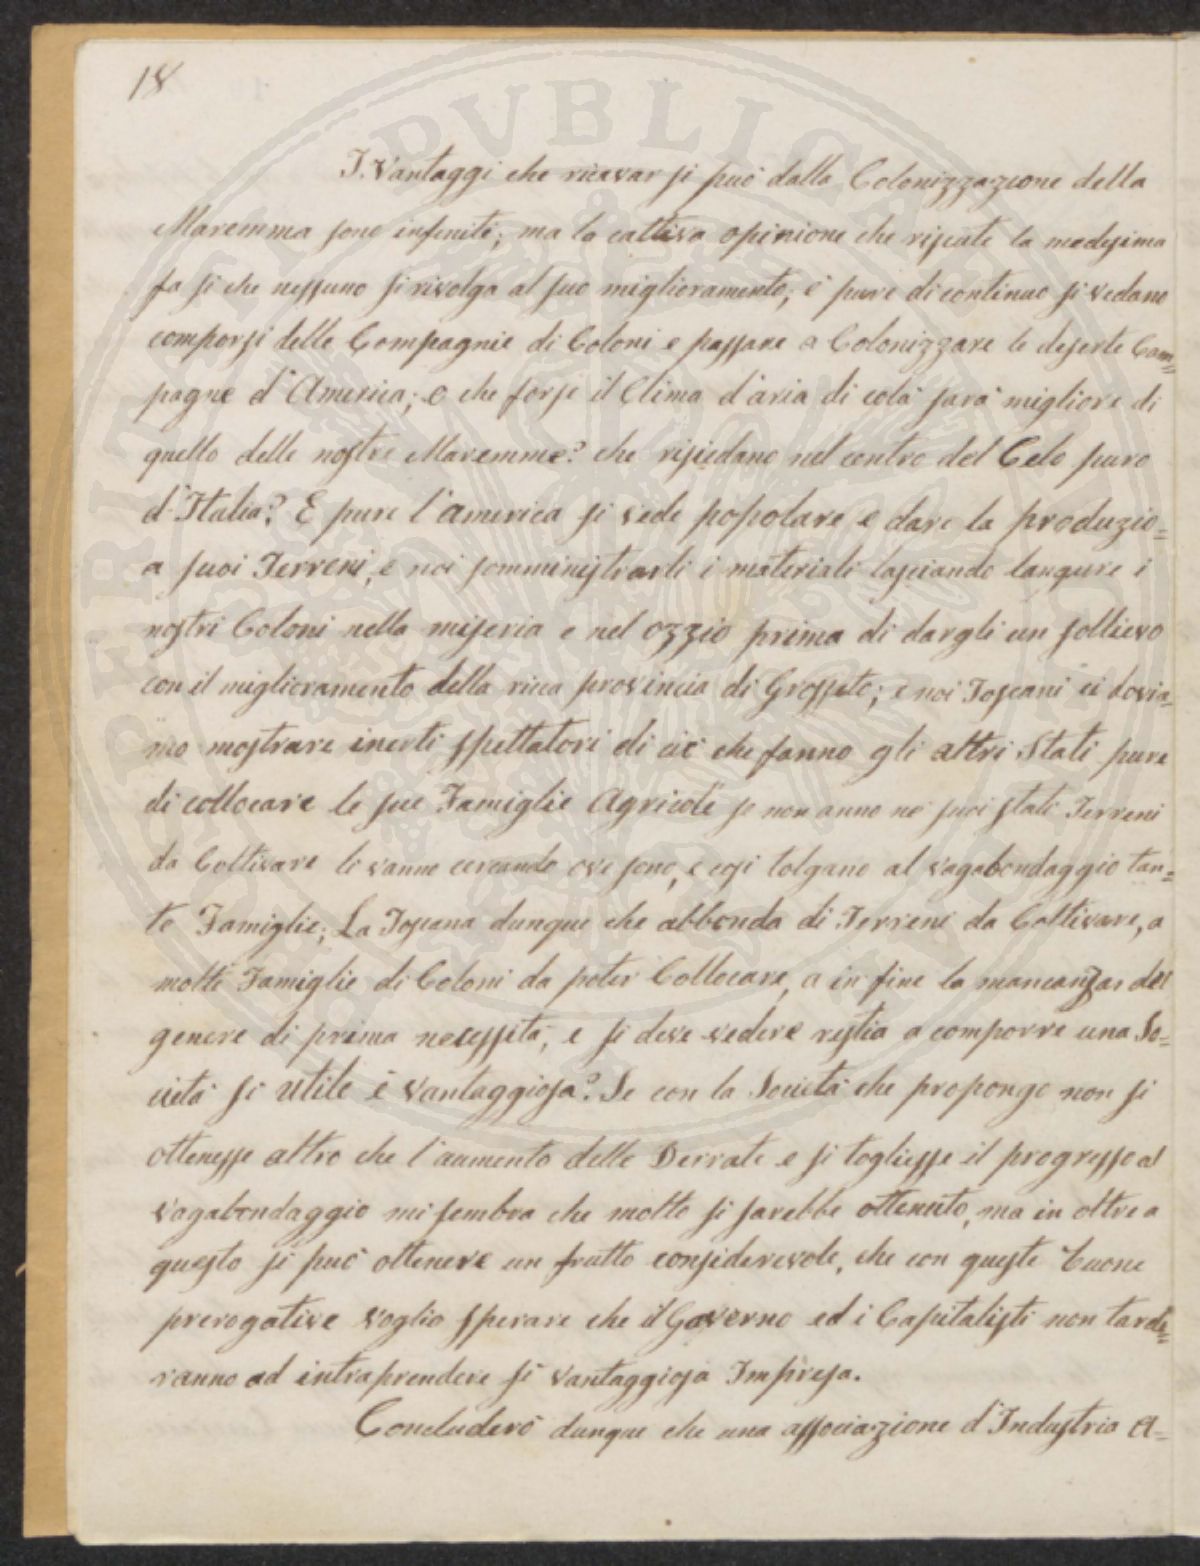 18
I Vantaggi che ricavar si può dalla Colonizzazione della
Maremma sono infiniti; ma la cattiva opinione che riscote la medesima
fa si che nessuno si rivolga al suo miglioramento; e pure di continuo si vedano
comporsi delle Compagnie di Coloni e passare a Colonizzare le deserte Cam=
pagne d'America; o che forse il Clima d'aria di colà sarà migliore di
quello delle nostre Maremme? che risiedano nel centro del Celo puro
d'Italia? E pure l'america si vede popolare e dare la produzio=
a suoi Terreni, e noi somministrarli i materiali lasciando langure i
nostri Coloni nella miseria e nel ozzio prima di dargli un sollievo
con il miglioramento della ricca provincia di Grosseto; e noi Toscani ci dovia=
mo mostrare inerti spettatori di ciò che fanno gli altri Stati pure
di collocare le sue Famiglie Agricole se non anno ne suoi stati Terreni
da Coltivare li vanno cercando ove sono, e così tolgano al vagabondaggio tan=
te Famiglie; La Toscana dunque che abbonda di Terreni da Coltivare, a
molte Famiglie di Coloni da poter Collocare, a in fine la mancanza del
genere di prima necessità, e si deve vedere restia a comporre una So=
cietà si utile e Vantaggiosa? Se con la Società che propongo non si
ottenesse altro che l'aumento delle Derrate e si togliesse il progresso al
vagabondaggio mi sembra che molto si sarebbe ottenuto, ma in oltre a
questo si può ottenere un frutto considerevole, che con queste buone
prerogative voglio sperare che il Governo ed i Capitalisti non tarde=
ranno ad intraprendere si vantaggiosa Impresa.
Concluderò dunque che una associazione d'Industria A=